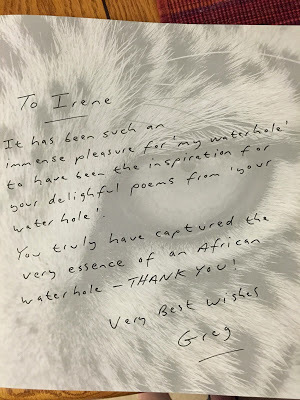 To Irene
It has been such an
immense pleasure for 'my waterhole'
to have been the inspiration for
your delighful poems from 'your
water hole'.
You truly have captured the
very essence of an African
waterhole – THANK YOU!
Very Best Wishes
Greg